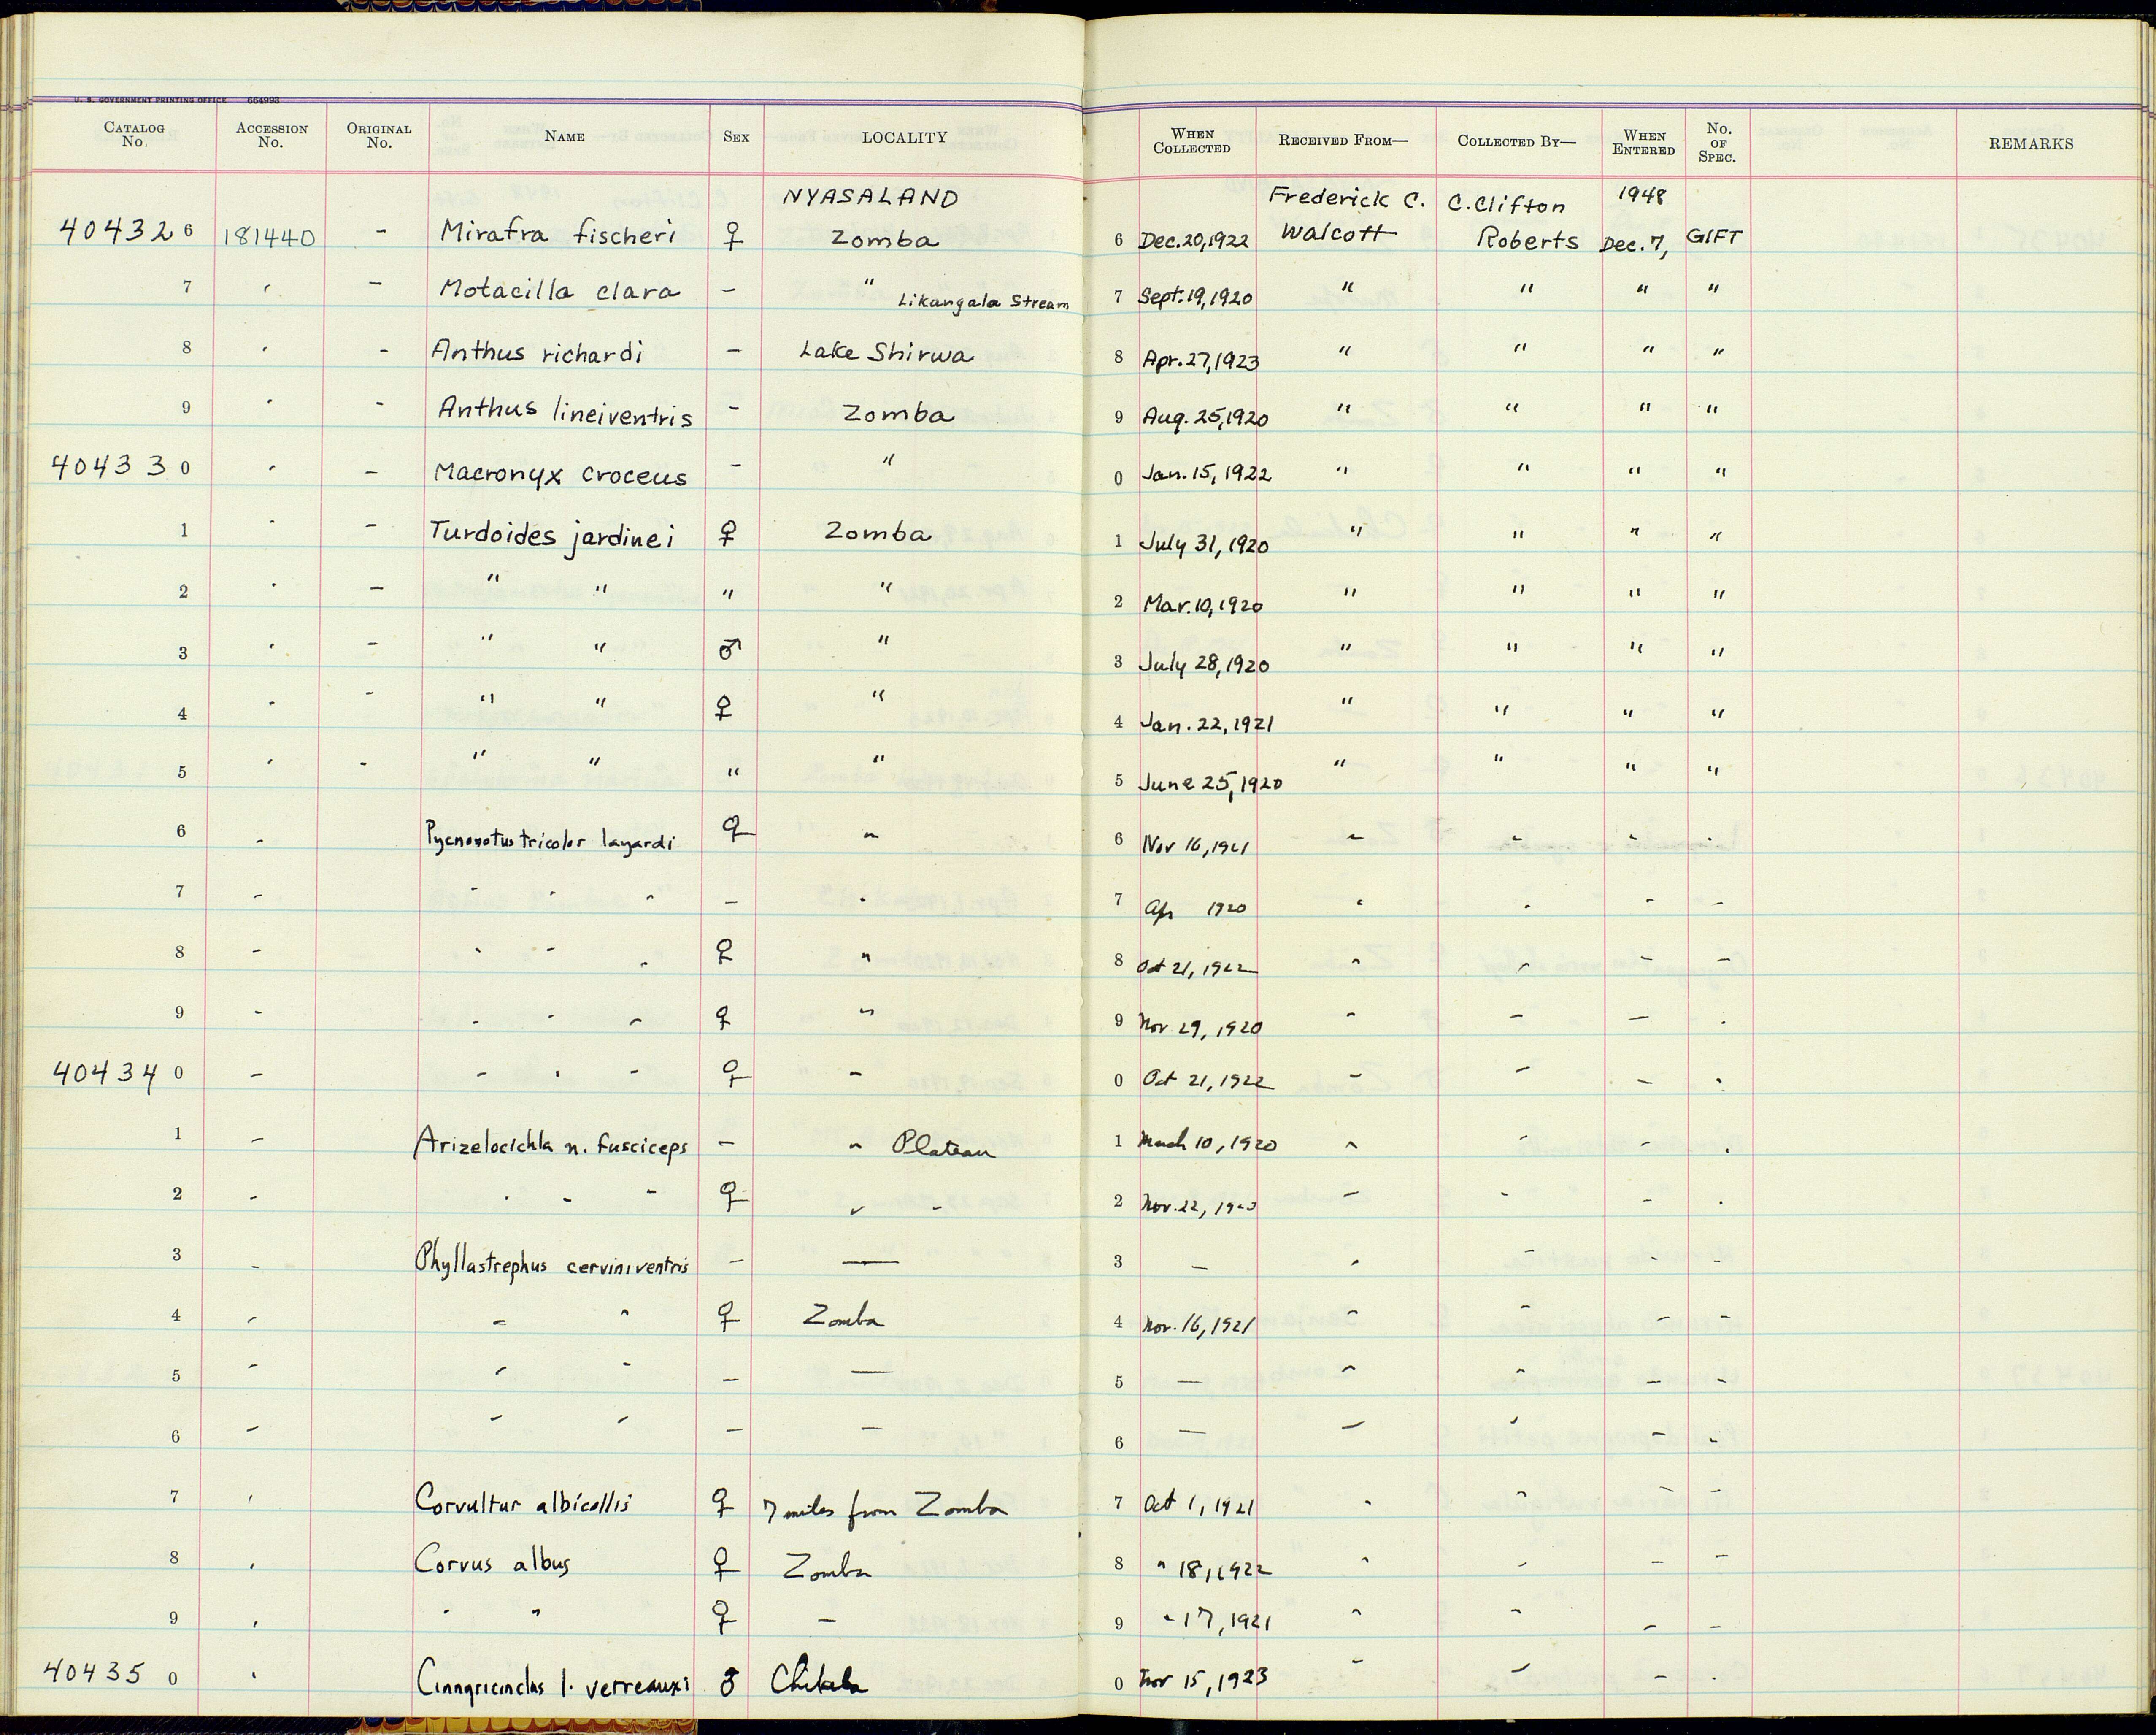 U. S. GOVERNMENT PRINTING OFFICE 664993
CATALOG No. ACCESSION No. ORIGINAL No. NAME SEX LOCALITY WHEN COLLECTED RECEIVED FROM— COLLECTED BY— WHEN ENTERED No. OF SPEC. REMARKS
NYASALAND Frederick C. C. Clifton 1948
404326 181440 - Mirafra fischeri ♀ Zomba 6 Dec. 20, 1922 Walcott Roberts Dec. 7, GIFT
7 " - Motacilla clara - " Likangala Stream 7 Sept. 19, 1920 " " " "
8 " - Anthus richardi - Lake Shirwa 8 Apr. 27, 1923 " " " "
9 " - Anthus lineiventris - Zomba 9 Aug. 25, 1920 " " " "
404330 " - Macronyx croceus - " 0 Jan. 15, 1922 " " " "
1 " - Turdoides jardinei ♀ Zomba 1 July 31, 1920 " " " "
2 " - " " " " 2 Mar. 10, 1920 " " " "
3 " - " " ♂ " 3 July 28, 1920 " " " "
4 " - " " ♀ " 4 Jan. 22, 1921 " " " "
5 " - " " " " 5 June 25, 1920 " " " "
6 " Pycnonotus tricolor layardi ♀ " 6 Nov 16, 1921 " " " "
7 " " " " - " 7 Apr 1920 " " " "
8 " " " " ♀ " 8 Oct 21, 1922 " " " "
9 " " " " ♀ " 9 Nov 29, 1920 " " " "
404340 " " " " ♀ " 0 Oct 21, 1922 " " " "
1 " Arizelocichla n. fusciceps - " Plateau 1 March 10, 1920 " " " "
2 " " " " ♀ " " 2 Nov. 22, " " " "
3 " Phyllastrephus cerviniventris - — 3 — " " " "
4 " " " ♀ Zomba 4 Nov. 16, 1921 " " " "
5 " " " - — 5 — " " " "
6 " " " - — 6 — " " " "
7 " Corvultur albicollis ♀ 7 miles from Zomba 7 Oct 1, 1921 " " " "
8 " Corvus albus ♀ Zomba 8 " 18, 1922 " " " "
9 " " " ♀ " 9 " 17, 1921 " " " "
404350 " Cinnyricinclus l. verreauxi ♂ Chikala 0 Nov 15, 1923 " " " "